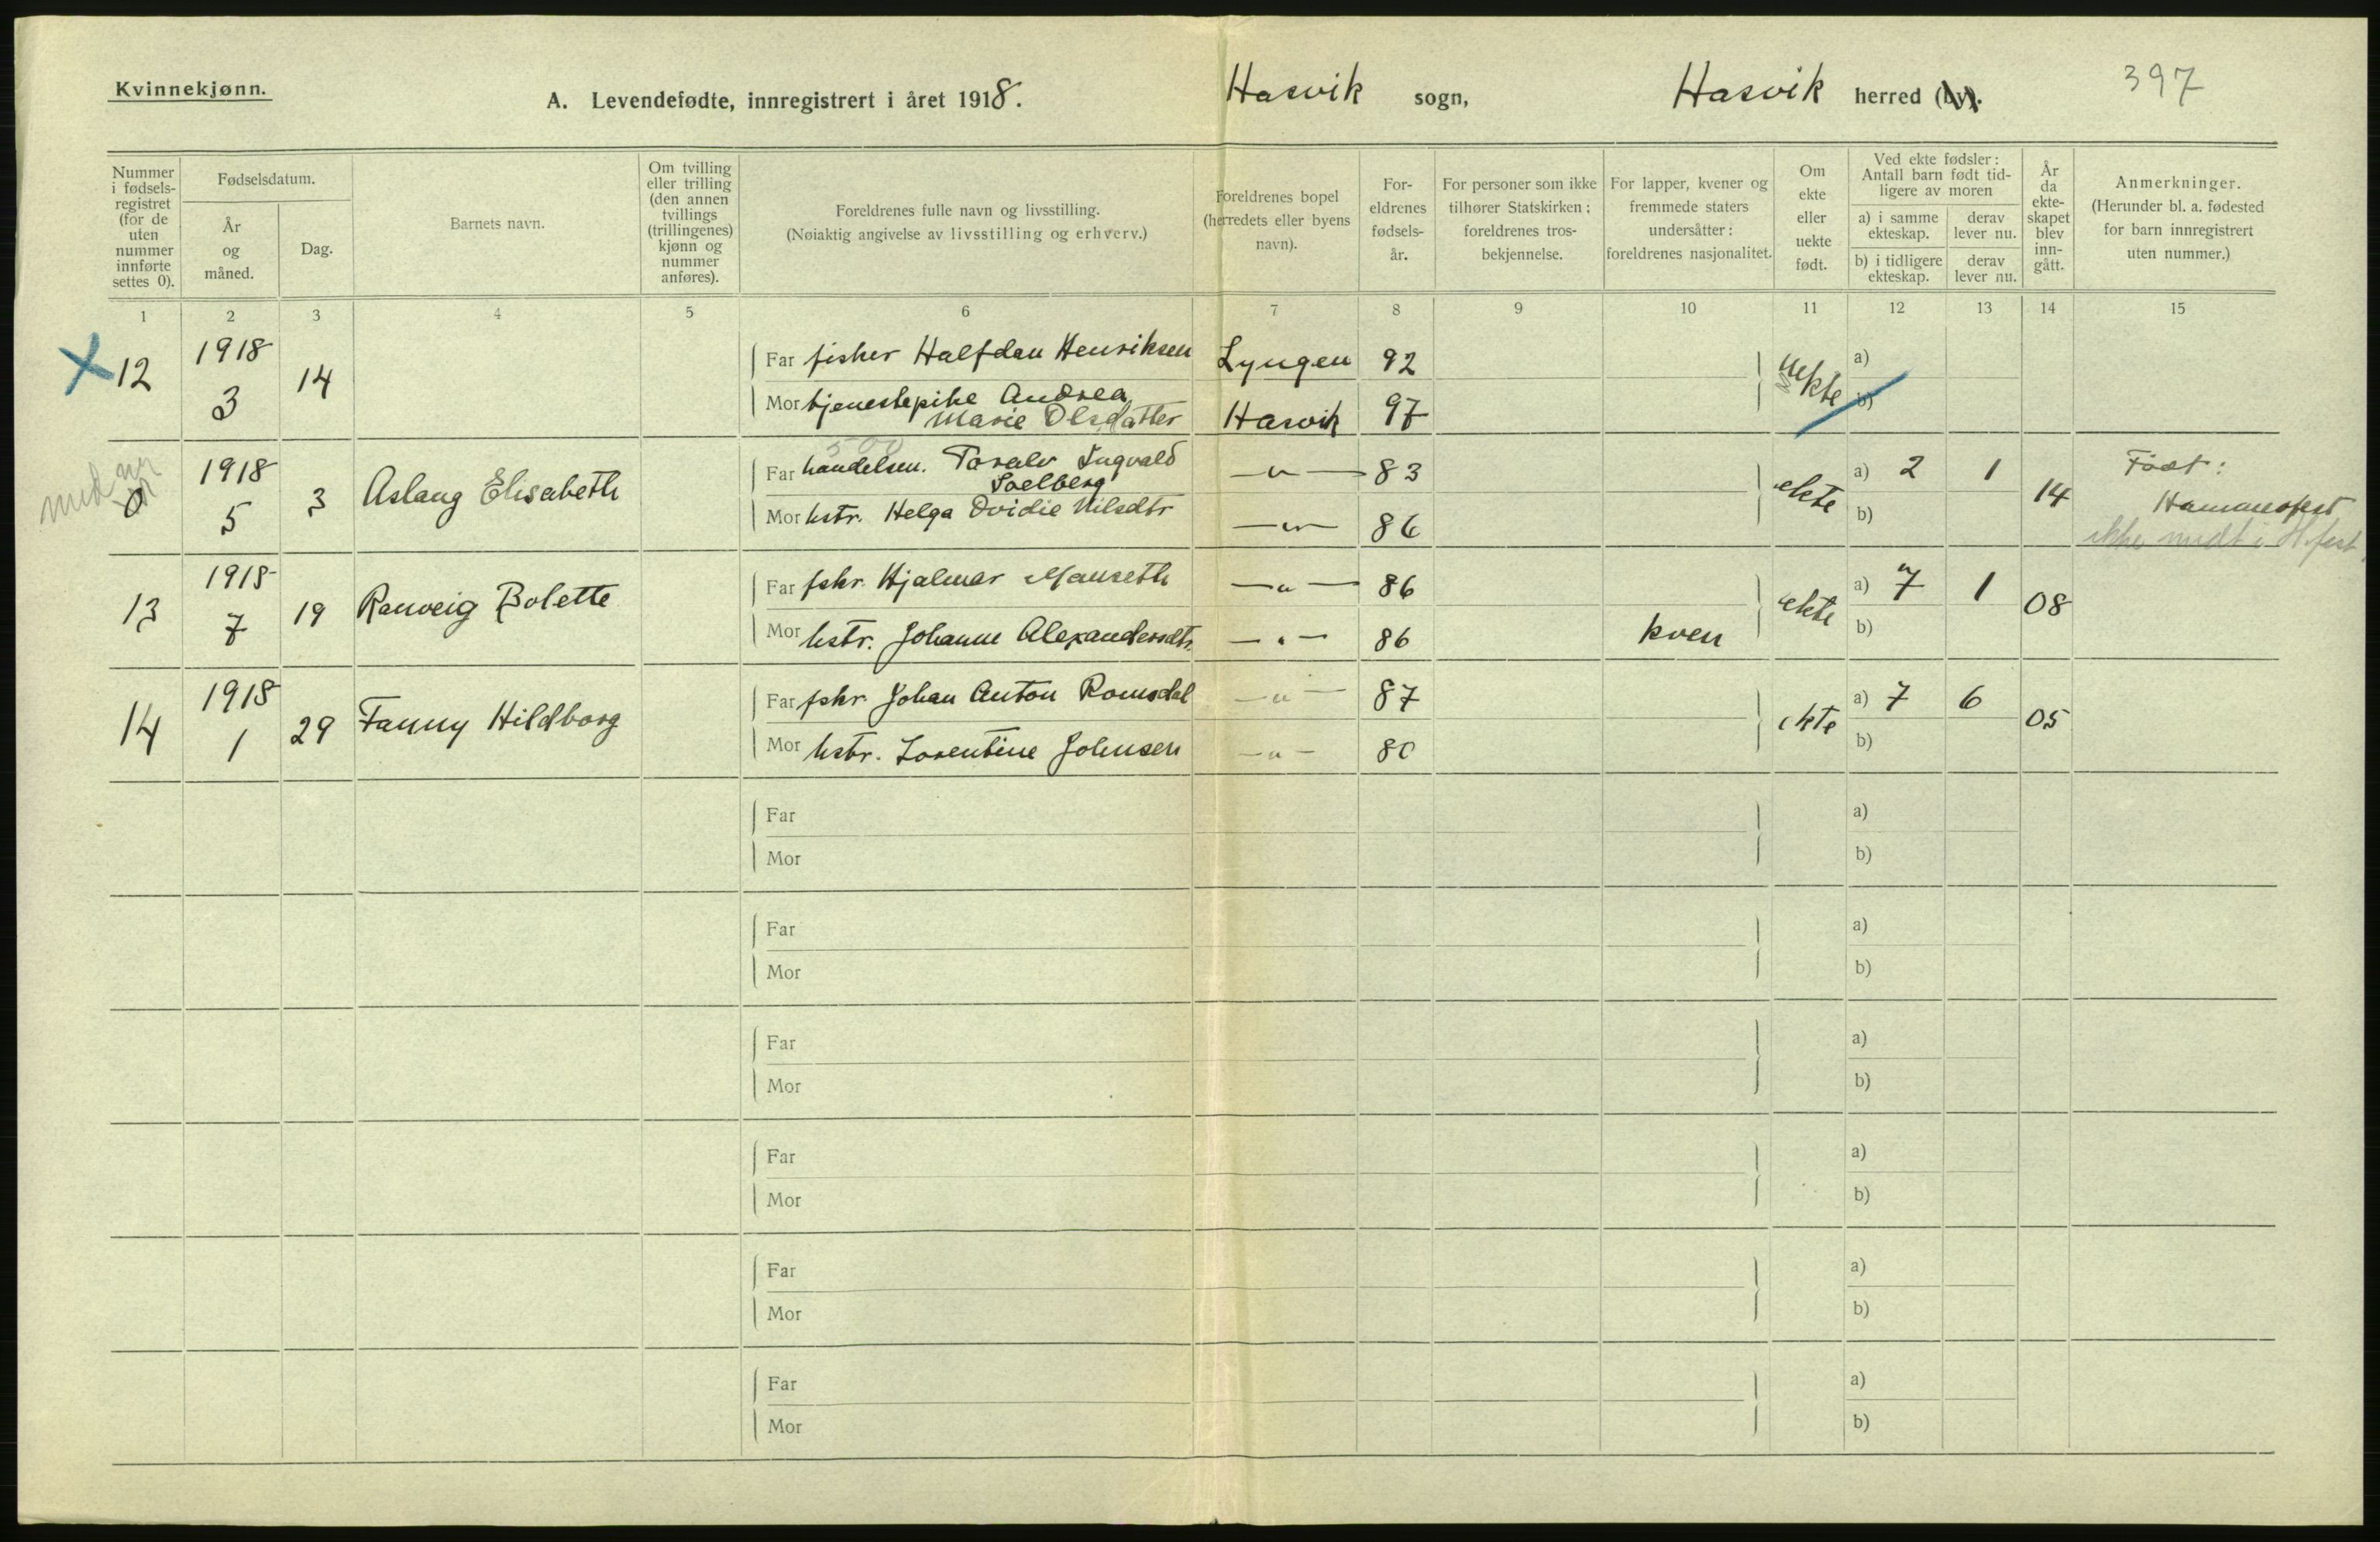 Kvinnekjønn.
A. Levendefødte, innregistrert i året 1918.
Hasvik sogn,
Hasvik herred (by).
397
Nummer i fødsels-registret (for de uten nummer innførte settes 0).
Fødselsdatum.
År og måned.
Dag.
Barnets navn.
Om tvilling eller trilling (den annen tvillings (trillingenes) kjønn og nummer anføres).
Foreldrenes fulle navn og livsstilling.
(Nøiaktig angivelse av livsstilling og erhverv.)
Foreldrenes bopel (herredets eller byens navn).
For-eldrenes fødsels-år.
For personer som ikke tilhører Statskirken; foreldrenes tros-bekjennelse.
For lapper, kvener og fremmede staters undersåtter: foreldrenes nasjonalitet.
Om ekte eller uekte født.
Ved ekte fødsler: Antall barn født tid-ligere av moren
a) i samme ekteskap.
derav lever nu.
b) i tidligere ekteskap.
derav lever nu.
År da ekte-skapet blev inn-gått.
Anmerkninger.
(Herunder bl. a. fødested for barn innregistrert uten nummer.)
1 2 3 4 5 6 7 8 9 10 11 12 13 14 15
X 12 1918 3 14
Far fisker Halfdan Henriksen Lyngen 92
Mor tjenestepike Andrea Marie Olsdatter Hasvik 97
uekte a) b)
0 1918 5 3 Aslaug Elisabeth
500
Far handelsm. Toralv Ingvald Soelberg —"— 83
Mor hstr. Helga Ovidie Nilsdtr —"— 86
ekte a) 2 1 b) 14
Født: Hammerfest
ikke medt i H.fest
13 1918 7 19 Ranveig Bolette
Far fskr. Hjalmar Mauseth —"— 86
Mor hstr. Johanne Alexandersdtr. —"— 86 kven
ekte a) 7 1 b) 08
14 1918 1 29 Fanny Hildborg
Far fskr. Johan Anton Romsdal —"— 87
Mor hstr. Lorentine Johnsen —"— 80
ekte a) 7 6 b) 05
Far a)
Mor b)
Far a)
Mor b)
Far a)
Mor b)
Far a)
Mor b)
Far a)
Mor b)
Far a)
Mor b)